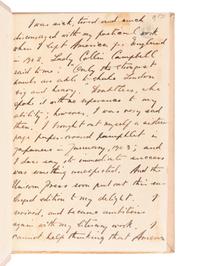 I was sick, tired and much
discouraged with my position & work
when I left America for England
in 1902. Lady Colin Campbell
said to me: "Only the strongest
hands are able to knock London
big and heavy." Doubtless, she
spoke it with no experiences to my
ability; however, I was very sad
then. I brought out myself a sixteen
page paper-covered pamphlet in
January, 1903; and
I dare say its immediate success
was something unexpected. And the
Unicorn Press soon put out this en-
larged edition to my delight. I
revived, and became ambitious
again with my literary work. I
cannot help thinking that America